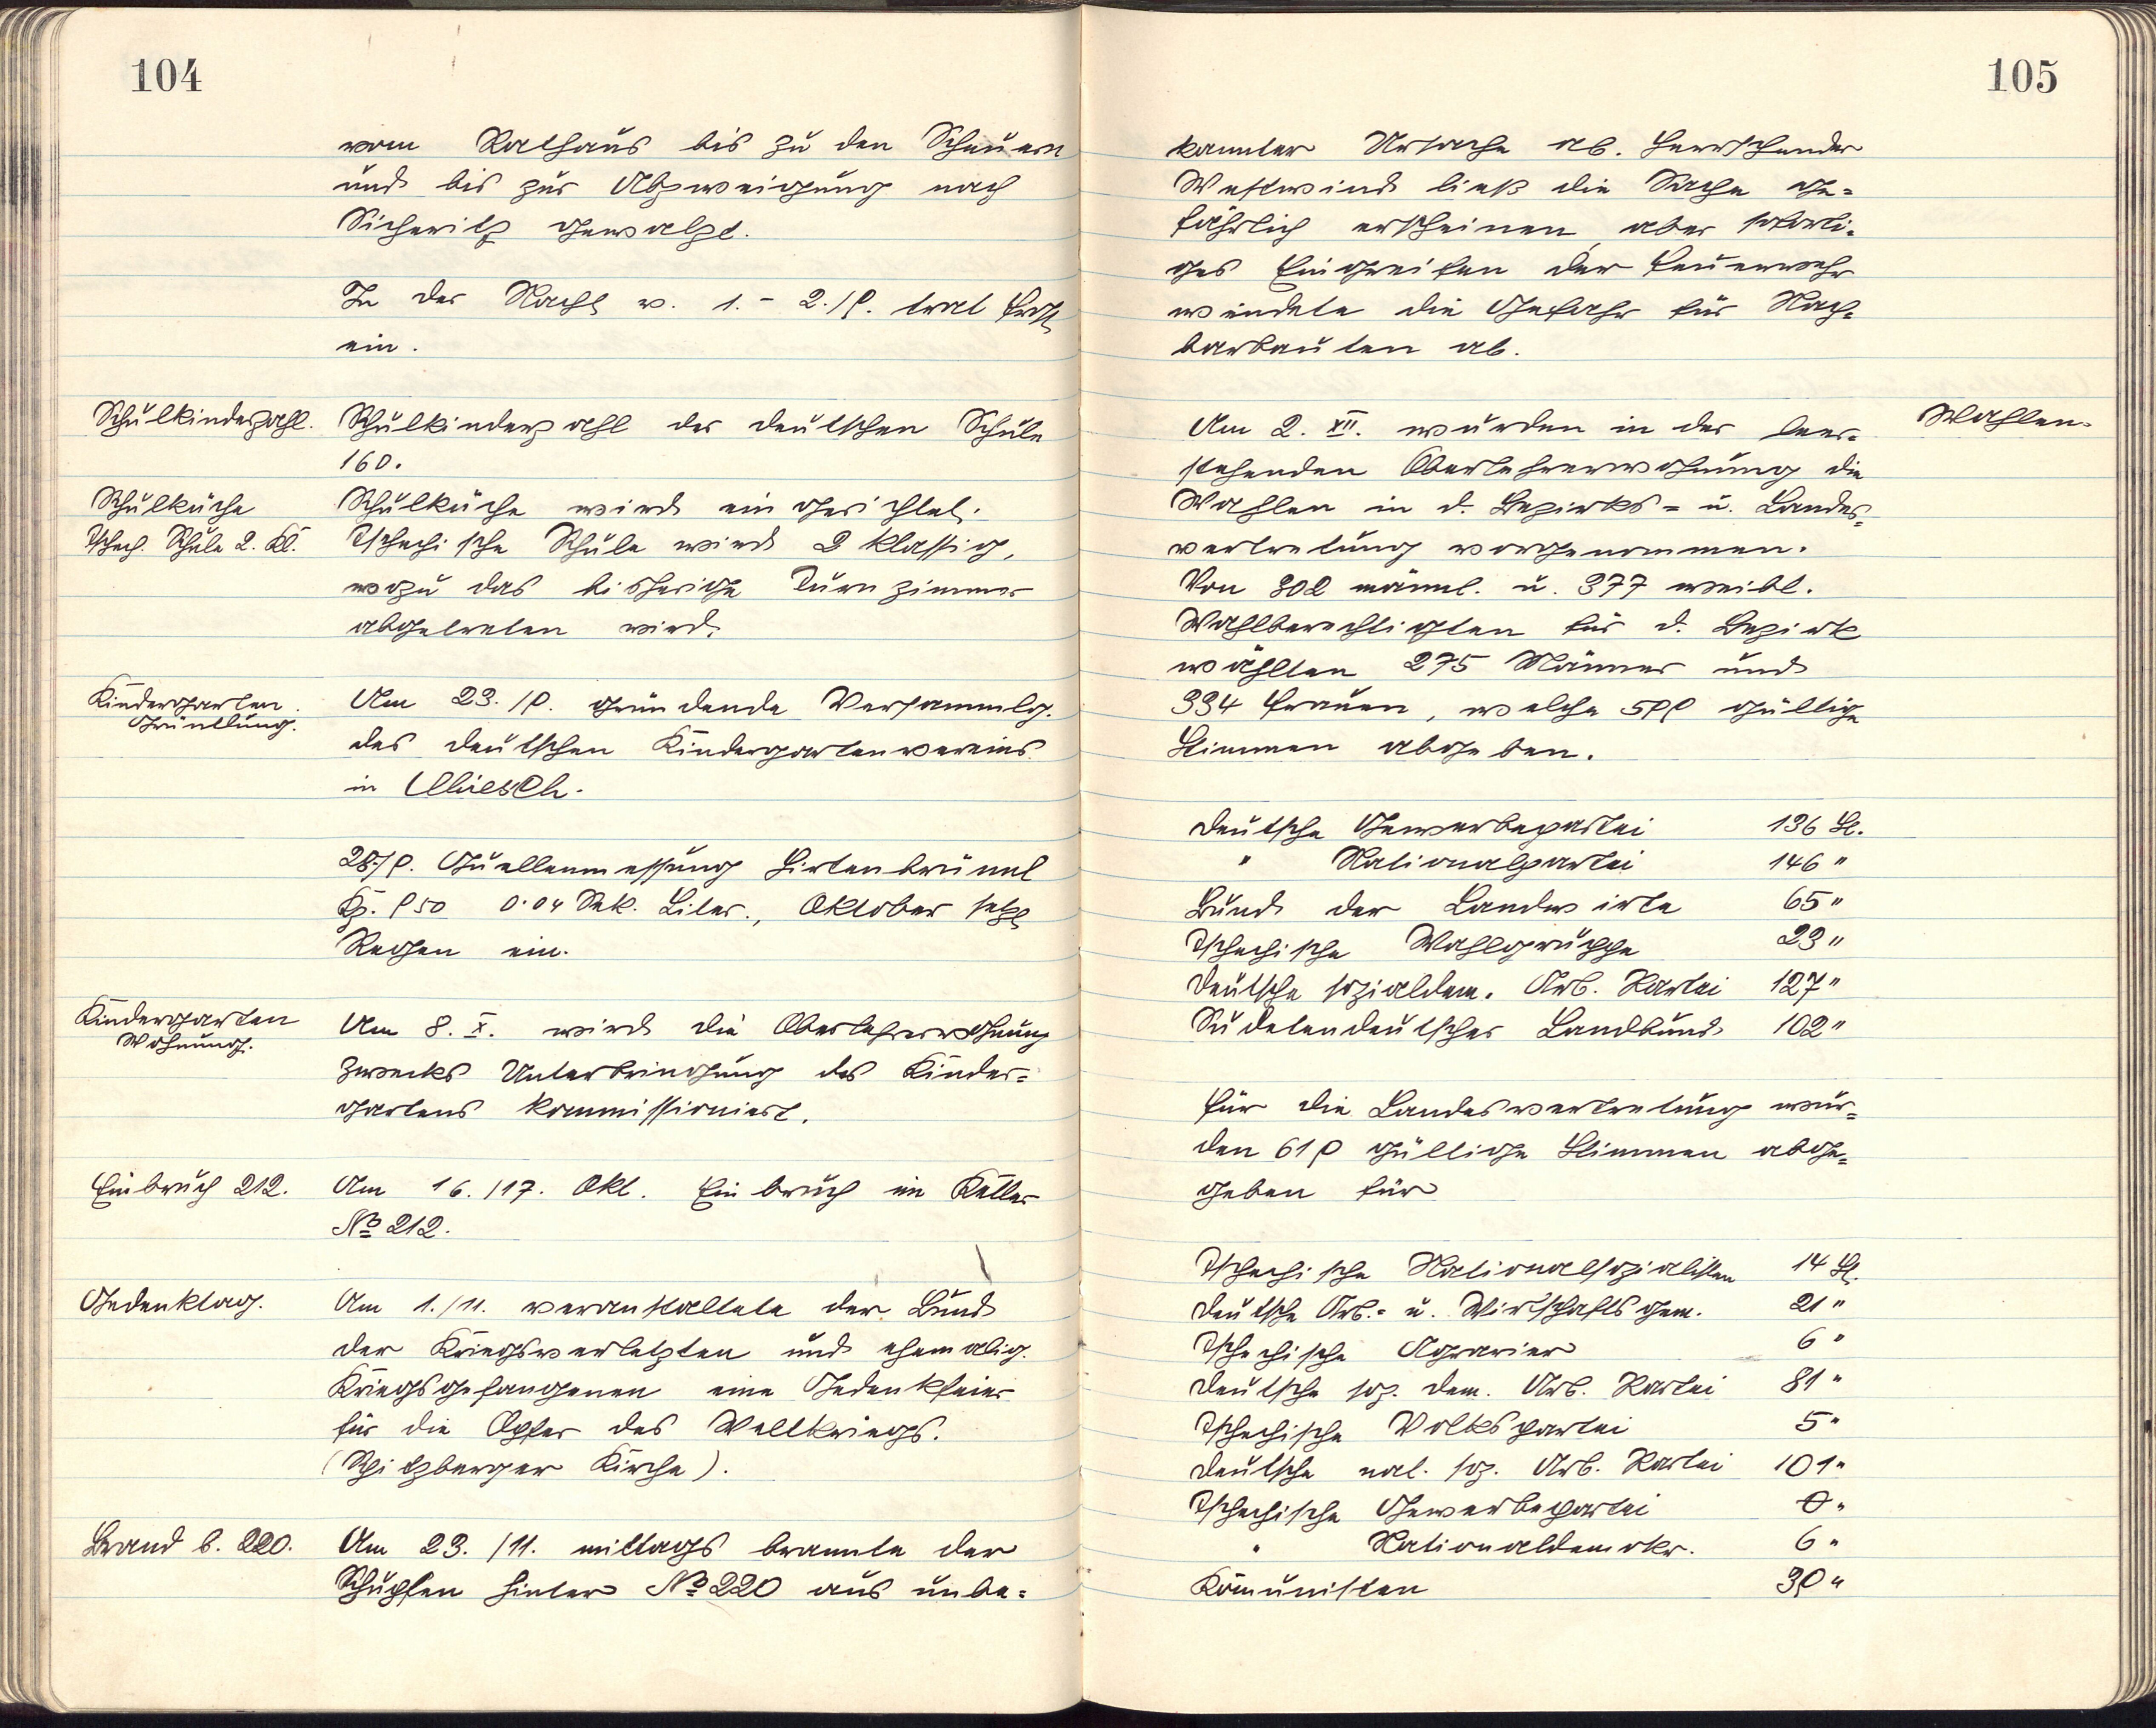 104
vom Rathaus bis zu den Scheuern
und bis zur Abzweigung nach
Sichwitz gewalzt.
In der Nacht v. 1. - 2./9. trat Frost
ein.
Schulkinderzahl.
Schulkinderzahl der deutschen Schule
160.
Schulküche
Schulküche wird eingerichtet.
Tschech. Schule 2. Kl.
Tschechische Schule wird 2 klassig,
wozu das bisherige Turnzimmer
abgetreten wird.
Kindergarten
Gründung.
Am 23./9. gründende Versammlg.
des deutschen Kindergartenvereins
in
28./9. Quellenmessung Hirtenbrünnl
Kz. 950 0·04 Sek. Liter., Oktober setzt
Regen ein.
Kindergarten
Wohnung.
Am 8. X. wird die Oberlehrerwohnung
zwecks Unterbringung des Kinder=
gartens kommissioniert.
Einbruch 212.
Am 16./17. Okt. Einbruch im Keller
No 212.
Gedenktag.
Am 1./11. veranstaltete der Bund
der Kriegsverletzten und ehemalig.
Kriegsgefangenen eine Gedenkfeier
für die Opfer des Weltkriegs.
(Spitzberger Kirche).
Brand b. 220.
Am 23./11. mittags brannte der
Schupfen hinter No 220 aus unbe=
105
kannter Ursache ab. Herrschender
Westwind ließ die Sache ge=
fährlich erscheinen, aber soforti=
ges Eingreifen der Feuerwehr
wendete die Gefahr für Nach=
barbauten ab.
Wahlen.
Am 2. XII. wurden in der leer=
stehenden Oberlehrerwohnung die
Wahlen in d. Bezirks= u. Landes=
vertretung vorgenommen.
Von 302 männl. u. 377 weibl.
Wahlberechtigten für d. Bezirk
wählten 275 Männer und
334 Frauen, welche 599 gültige
Stimmen abgeben.
Deutsche Gewerbepartei 136 St.
" Nationalpartei 146 "
Bund der Landwirte 65 "
Tschechische Wahlgruppe 23 "
Deutsche sozialdem. Arb. Partei 127 "
Sudetendeutscher Landbund 102 "
Für die Landesvertretung wur=
den 619 gültige Stimmen abge=
geben für
Tschechische Nationalsozialisten 14 St.
Deutsche Arb.= u. Wirtschaftsgem. 21 "
Tschechische Agrarier 6 "
Deutsche soz. dem. Arb. Partei 81 "
Tschechische Volkspartei 5 "
Deutsche nat. soz. Arb. Partei 101 "
Tschechische Gewerbepartei 0 "
" Nationaldemokr. 6 "
Kommunisten 39 "